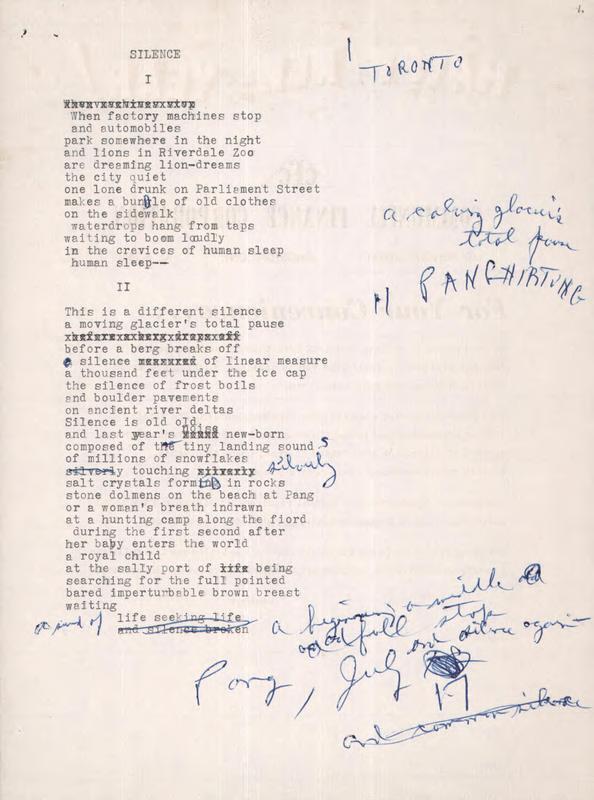 1.
SILENCE
1 TORONTO
I
When factory machines stop
and automobiles
park somewhere in the night
and lions in Riverdale Zoo
are dreaming lion-dreams
the city quiet
one lone drunk on Parliament Street
makes a bundle of old clothes
on the sidewalk
waterdrops hang from taps
waiting to boom loudly
in the crevices of human sleep
human sleep--
a calving glacier's
total pause
PANGNIRTUNG
II
This is a different silence
a moving glacier's total pause
before a berg breaks off
a silence of linear measure
a thousand feet under the ice cap
the silence of frost boils
and boulder pavements
on ancient river deltas
Silence is old old
noise
and last year's new-born
composed of the tiny landing sounds
of millions of snowflakes
silverly touching silverly
silverly
salt crystals forming in rocks
stone dolmens on the beach at Pang
or a woman's breath indrawn
at a hunting camp along the fiord
during the first second after
her baby enters the world
a royal child
at the sally port of life being
searching for the full pointed
bared imperturbable brown breast
waiting
a sound of life seeking life
and silence broken
a beginning a middle
and full stop
and silence again—
Pang, July 17
and common silence